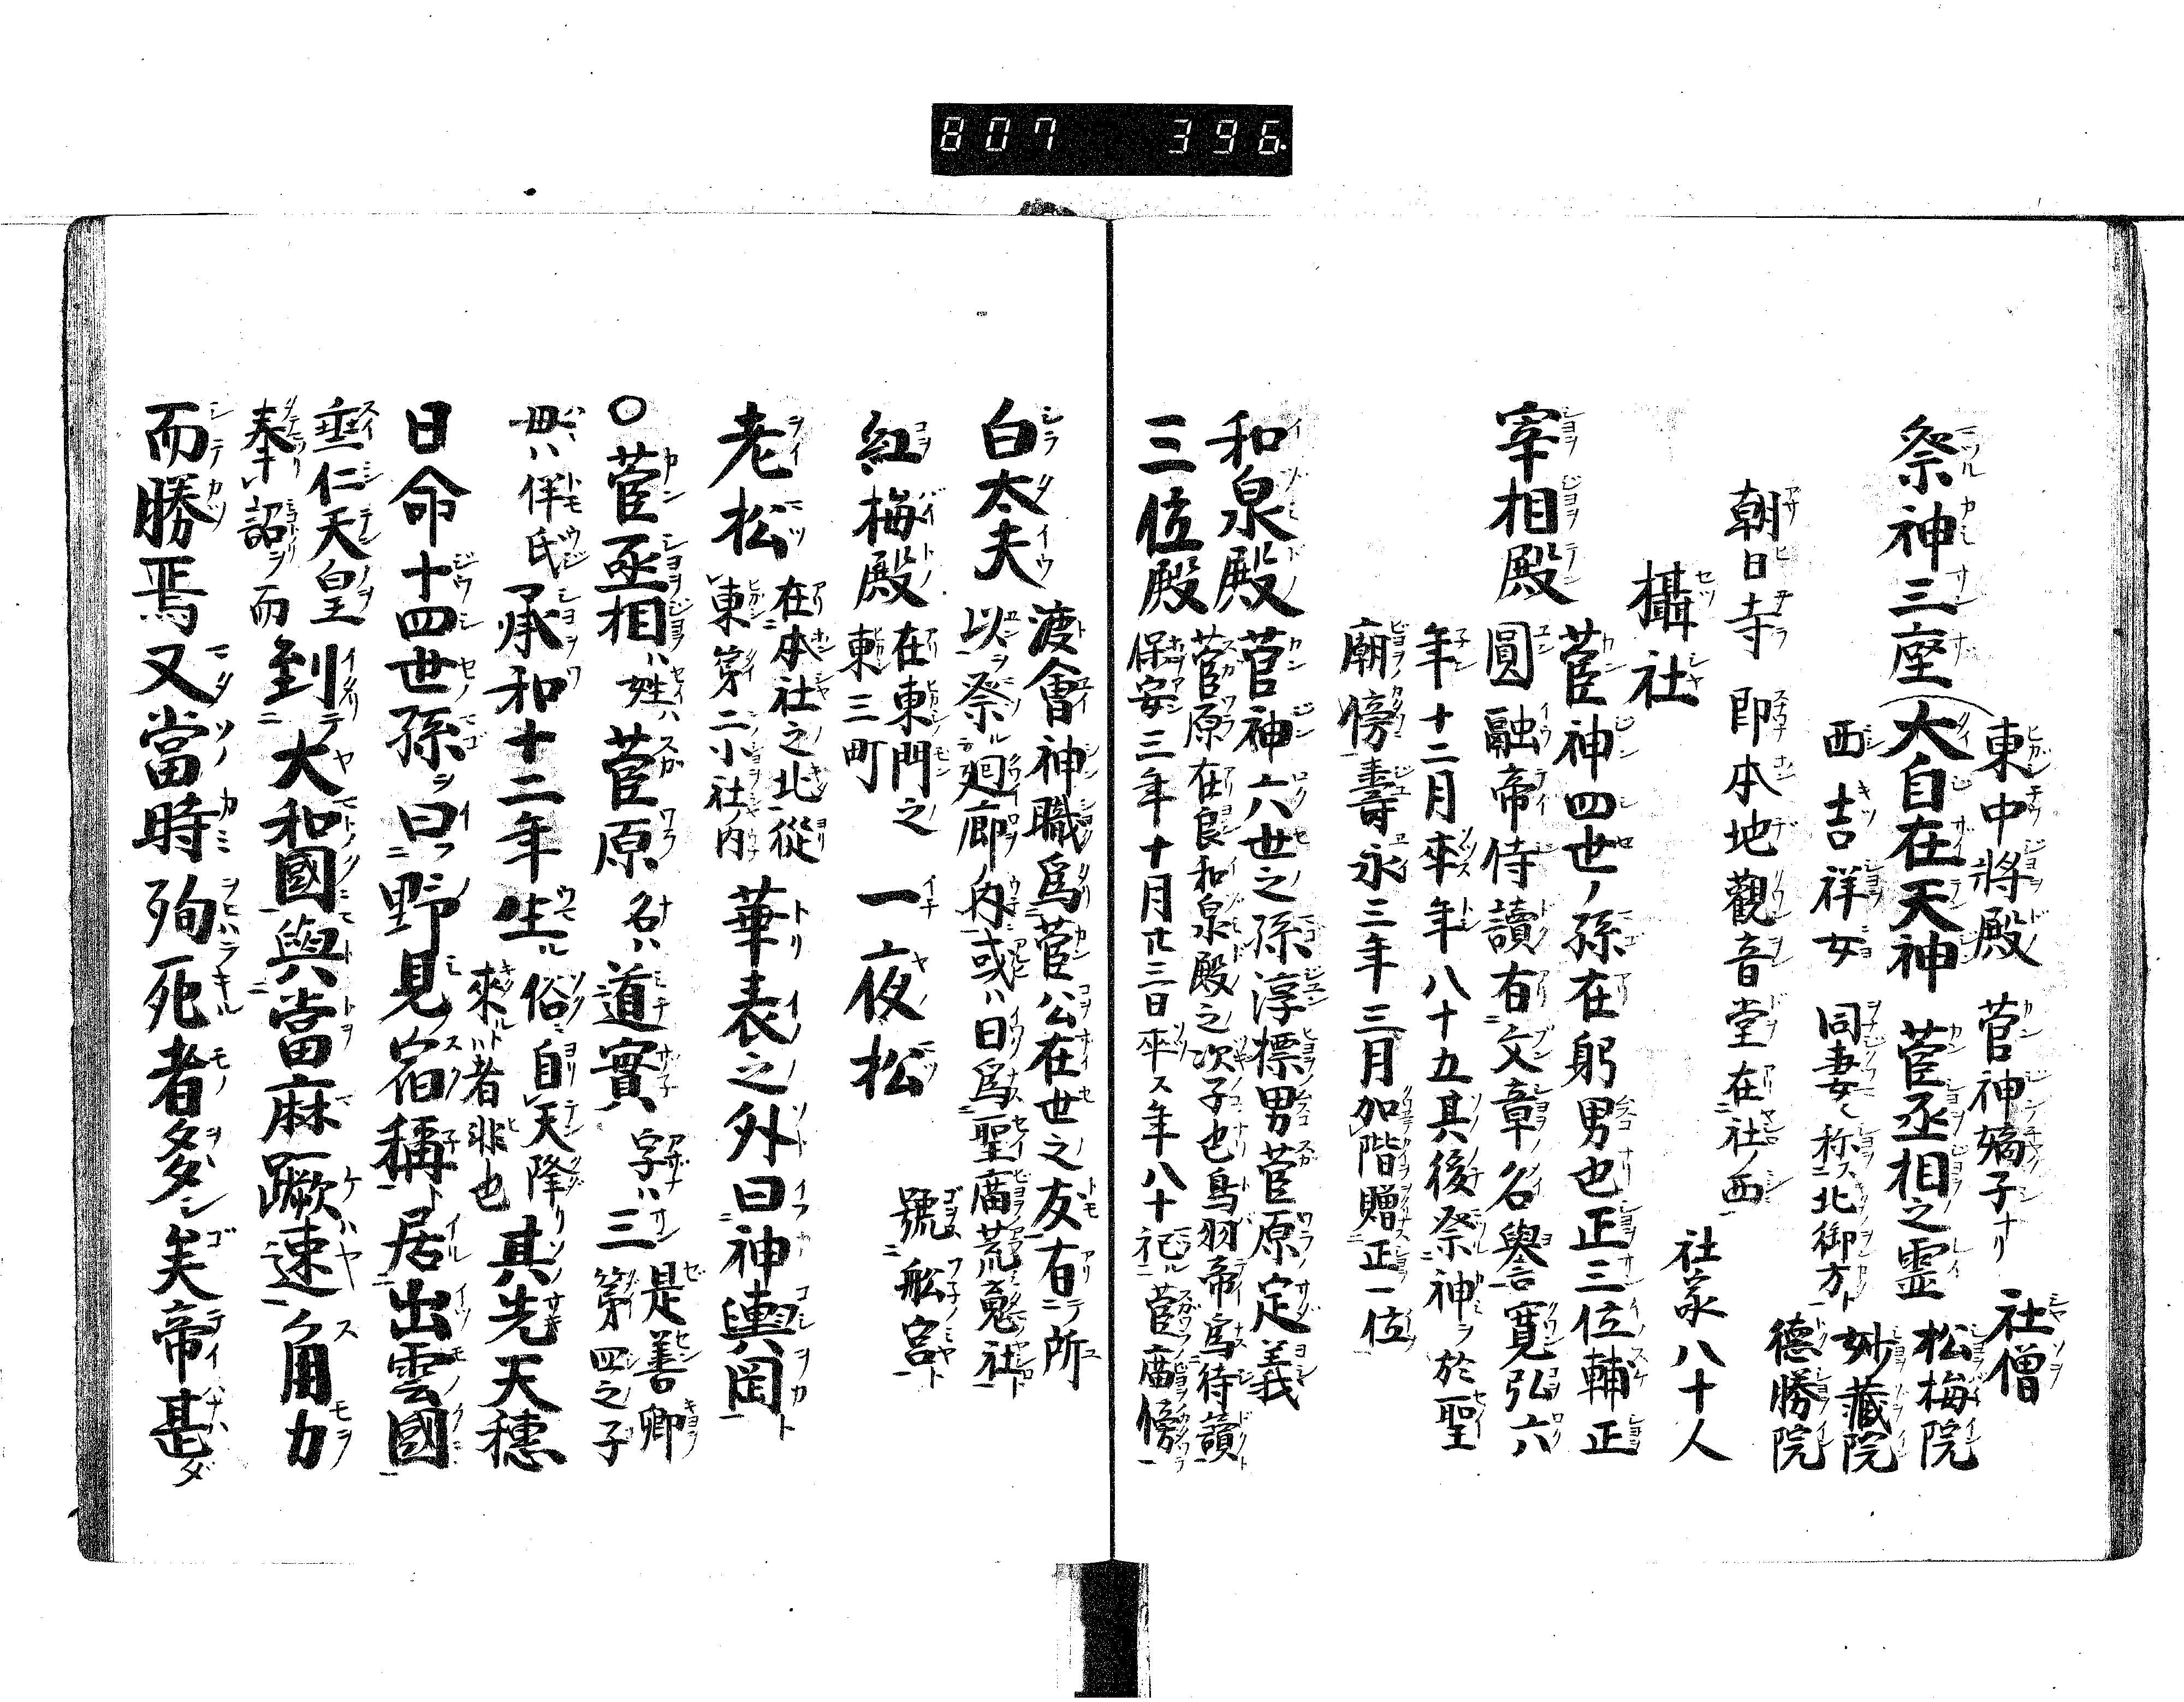 807 396
東中將殿 菅神嫡子ナリ 社僧
祭神三座 大自在天神 菅丞相之霊 松梅院
西 吉祥女 同妻女称ス北御方ト 妙藏院
德勝院
朝日寺 即本地觀音堂在社ノ西
社家八十人
攝社
菅神四世ノ孫在躬男也正三位輔正
宰相殿 圓融帝侍讀有文章名譽寛弘六
年十二月卒年八十五其後祭神ヲ於聖
廟傍壽永三年三月加階贈正一位
和泉殿 菅神六世之孫淳標男菅原定義
菅原在良和泉殿之次子也鳥羽帝爲待讀
三位殿 保安三年十月廿三日卒ス年八十祀菅庿傍
渡會神職爲菅公在世之友有テ所
白太夫 以祭ル廻廊内或ハ曰爲聖庿荒䰟社
紅梅殿 在東門之東三町 一夜松 號舩宮
老松 在本社之北從東第二小社ノ内 華表之外曰神輿岡
○菅丞相ハ姓ハ菅原 名ハ道實 字ハ三 是善卿第四之子
母ハ伴氏 承和十二年生ル 俗自天降リ來ルト者非也 其先天穗
日命十四世孫ヲ曰野見ノ宿稱ト居出雲國
垂仁天皇奉詔ヲ而到テ大和國與當麻蹶速角力
而勝焉又當時殉死者多シ矣帝甚ダ